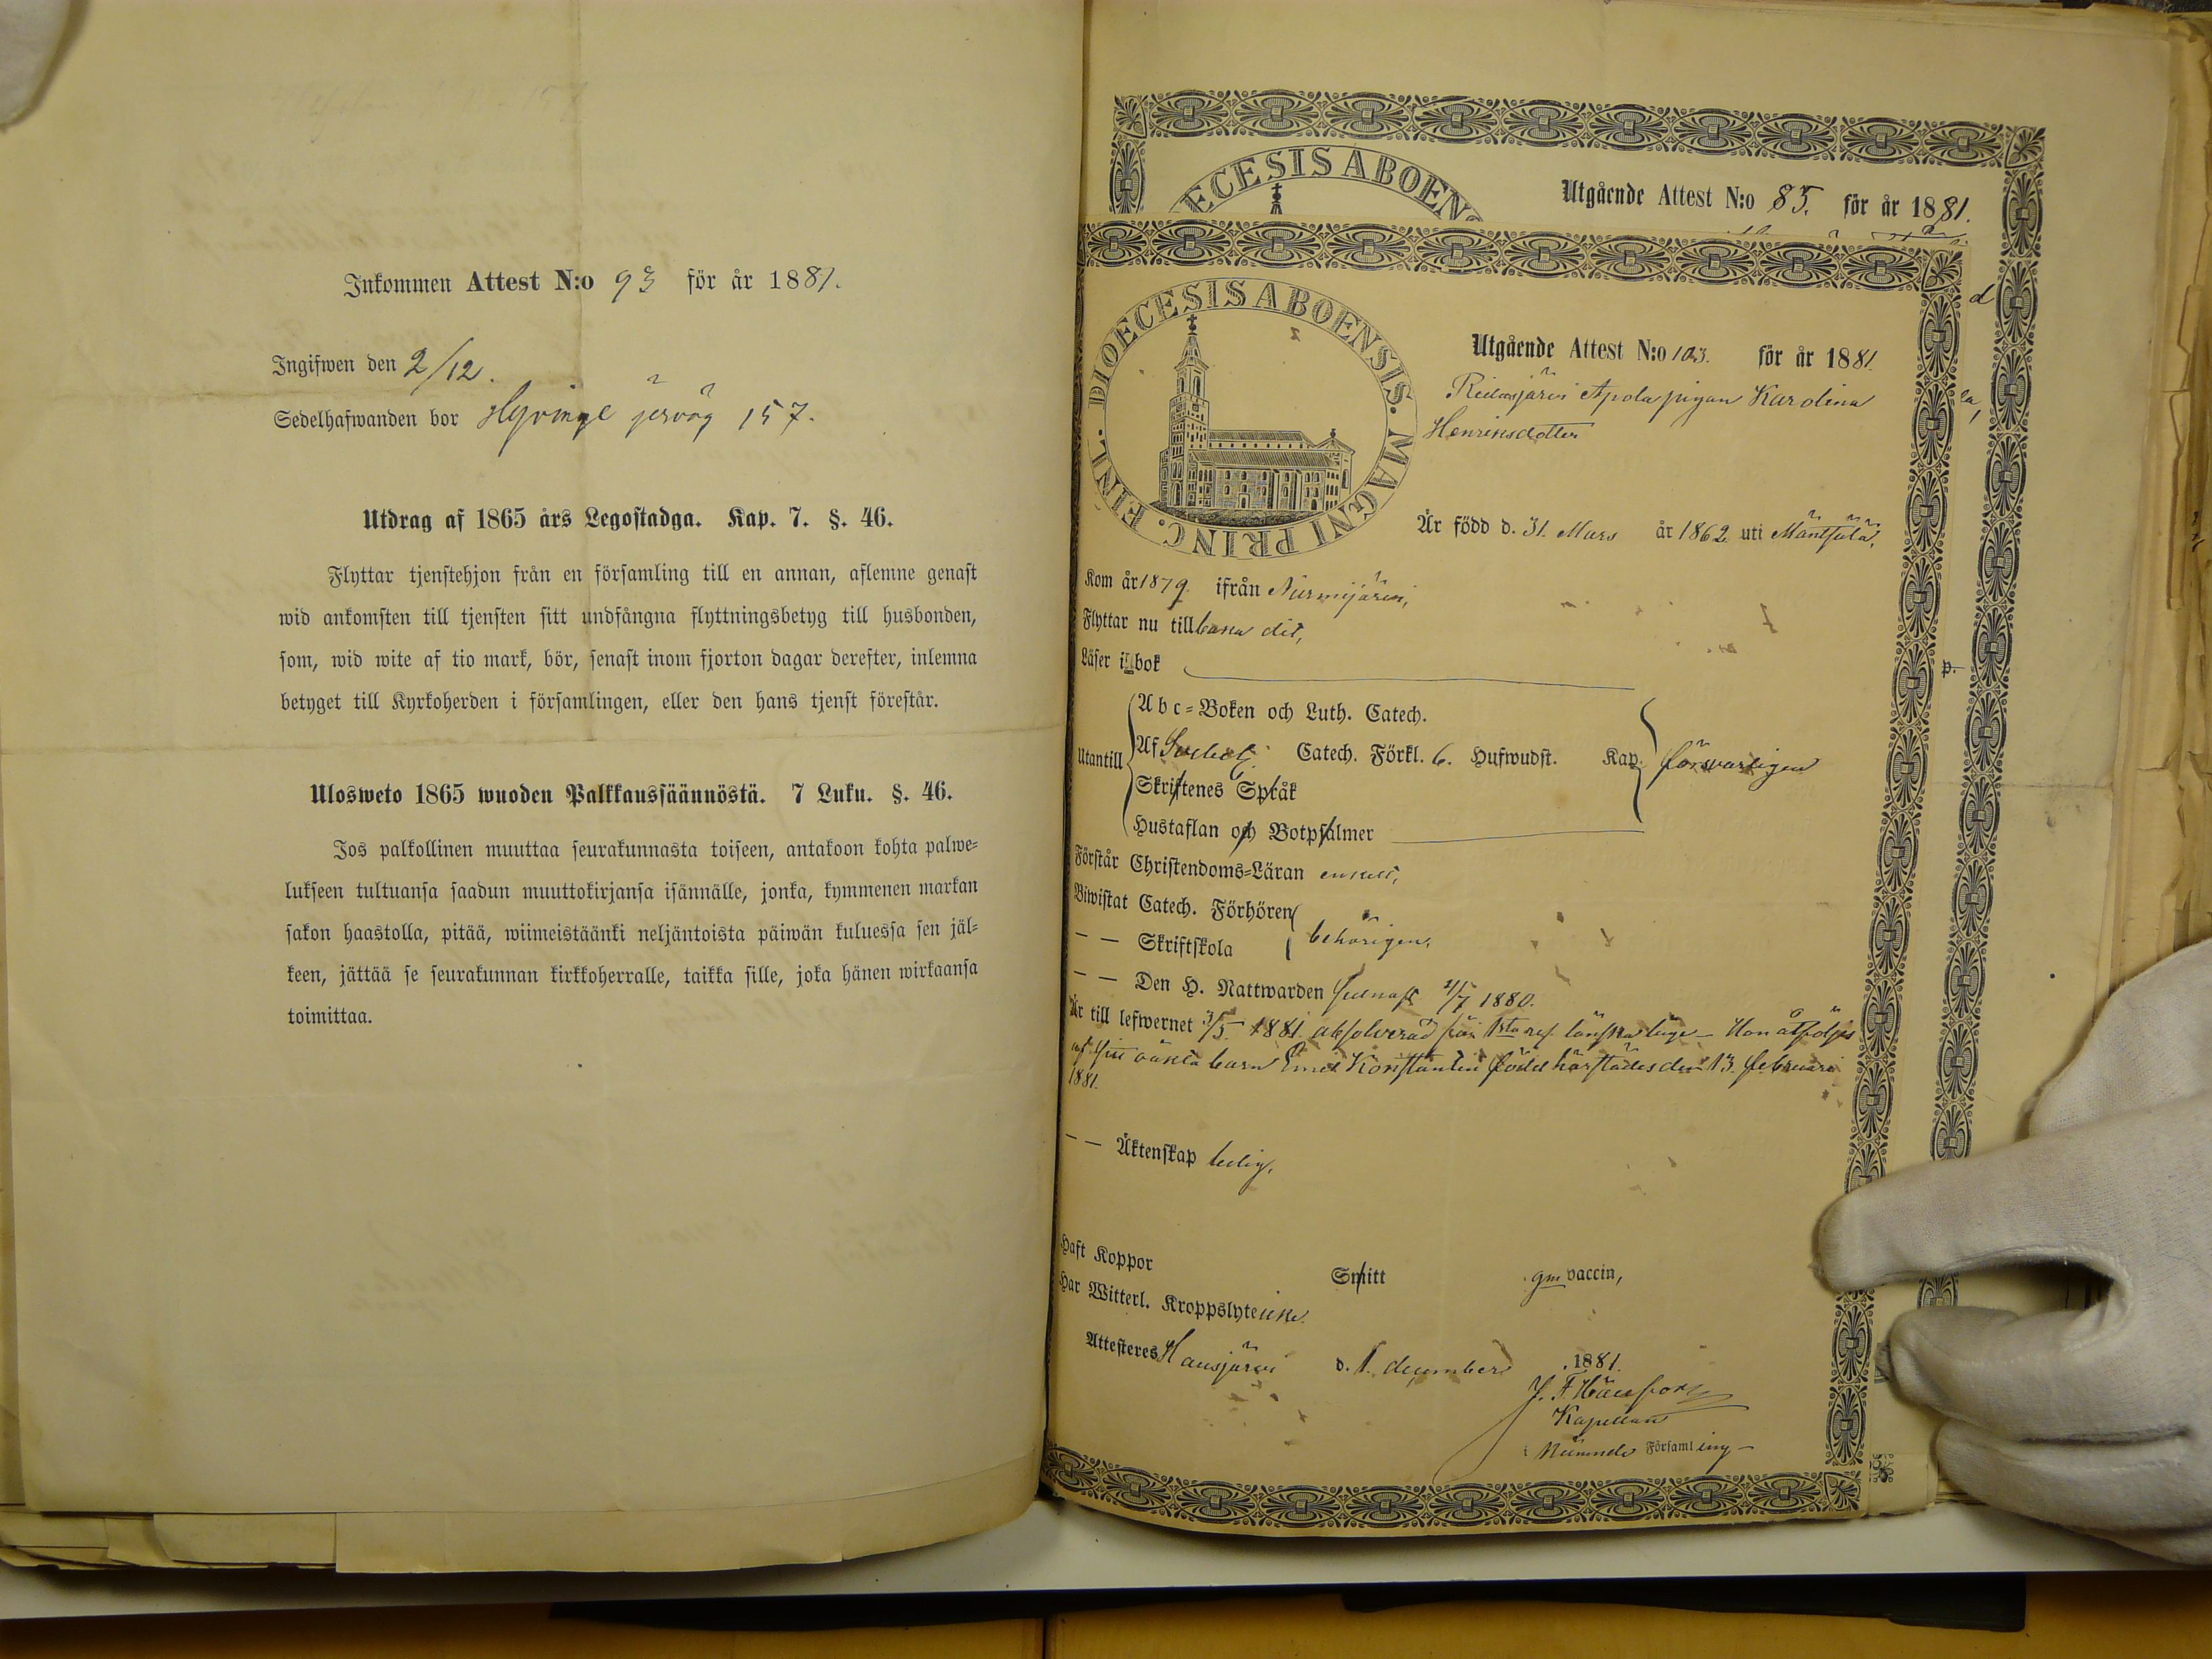 Inkommen Attest N:o 93 för år 1881.
Ingifwen den 2/12.
Sedelhafwanden bor Hyvinge jervög 157.
Utdrag af 1865 års Legostadga. Kap. 7. §. 46.
Flyttar tjenstehjon från en församling till en annan, aflemne genast
wid ankomsten till tjensten sitt undfångna flyttningsbetyg till husbonden,
som, wid wite af tio mark, bör, senast inom fjorton dagar derefter, inlemna
betyget till Kyrkoherden i församlingen, eller den hans tjenst förestår.
Ulosweto 1865 wuoden Palkkaussäännöstä. 7 Luku. §. 46.
Jos palkollinen muuttaa seurakunnasta toiseen, antakoon kohta palwe-
lukseen tultuansa saadun muuttokirjansa isännälle, jonka, kymmenen markan
sakon haastolla, pitää, wiimeistäänki neljäntoista päiwän kuluessa sen jäl-
keen, jättää se seurakunnan kirkkoherralle, taikka sille, joka hänen wirkaansa
toimittaa.
ECESIS ABOEN
Utgående Attest N:o 85. för år 1881.
DIOECESIS ABOENSIS. MAGNI PRINC. FINL.
Utgående Attest N:o 103. för år 1881.
Ridasjärvi Apola pigan Karolina
Henriksdotter
Är född d. 31. Mars år 1862 uti Mäntsälä,
Kom år 1879 ifrån Nurmijärvi,
Flyttar nu tillbaka dit,
Läser i bok
Utantill
Abc-Boken och Luth. Catech.
Af Svebelj Catech. Förkl. 6. Hufwudst. Kap. försvarligen
Skriftenes Språk
Hustaflan och Botpsalmer
Förstår Christendoms-Läran enkelt,
Biwistat Catech. Förhören
— — Skriftskola behörigen,
— — Den H. Nattwarden senast 4/7 1880.
Är till lefwernet 3/5 1881 absolverad för 1sta res. lönskaläge – Hon åtföljes
af sitt oäkta barn Emil Konstantin född härstädes den 13. februari
1881.
— — Äktenskap ledig,
Haft Koppor Smitt gm vaccin,
Har Witterl. Kroppslyte icke.
Attesteres Hausjärvi d. 1. december 1881.
Kapellan
i Nämnde Församling –